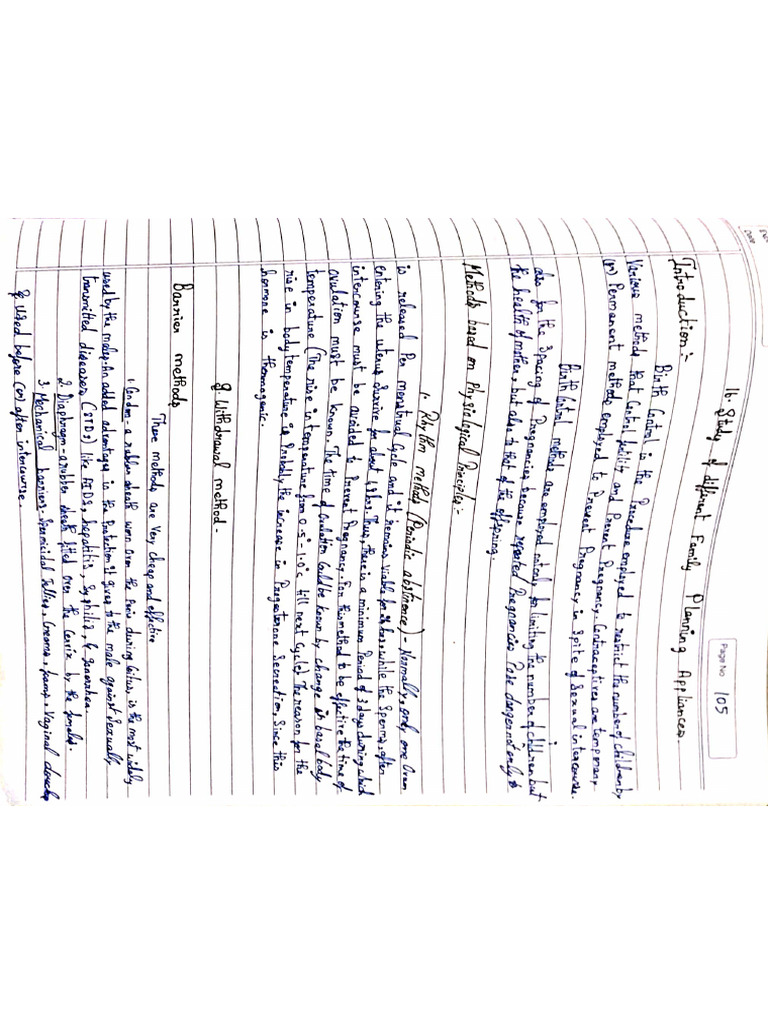 Page No 105
16. Study of different Family Planning Appliances.
Introduction:-
Birth Control is the Procedure employed to restrict the number of children by
Various methods that Control fertility and Prevent Pregnancy. Contraceptives are temporary
(or) Permanent methods employed to Prevent Pregnancy in Spite of Sexual intercourse.
Birth Control methods are employed not only for limiting the number of children but
also for the Spacing of Pregnancies because repeated Pregnancies Pose danger not only to
the health of mother, but also to that of the offspring.
Methods based on Physiological Principles:-
1. Rhythm methods (Periodic abstinence) - Normally, only one Ovum
is released Per menstrual Cycle and it remains viable for hours while the Sperms, after
entering the uterus Survive for about 48 hrs. Thus, there is a minimum Period of 3 days during which
intercourse must be avoided to Prevent Pregnancy. For this method to be effective the time of
ovulation must be known. The time of ovulation Could be known by change in basal body
temperature (The rise in temperature from 0.5 - 1.0°c till next Cycle) The reason for the
rise in body temperature is Probably the increase in Progesterone Secretion, Since this
hormone is thermogenic.
2. Withdrawal method -
Barrier methods
These methods are Very cheap and effective
1. Condom - a rubber sheath worn over the Penis during Coitus, is the most widely
used by the males. An added advantages is the Protection it gives to the male against Sexually
transmitted diseases (STDs) like AIDS, hepatitis, Syphilis, & Gonorrhea.
2. Diaphragm - a rubber sheath fitted over the Cervix by the females.
3. Mechanical barriers - Spermicidal Jellies, Creams, Vaginal
& Used before (or) after intercourse